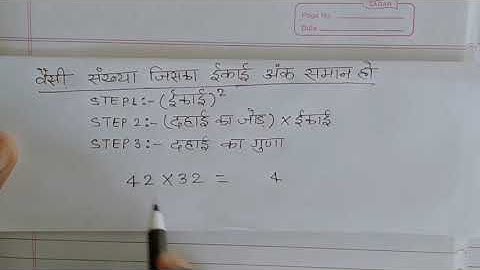 SARAH
Page No.
Date
वैसी संख्या जिसका ईकाई अंक समान हो
STEP1:- (ईकाई)²
STEP 2:- (दहाई का जोड़) × ईकाई
STEP 3:- दहाई का गुणा
42 × 32 = 4